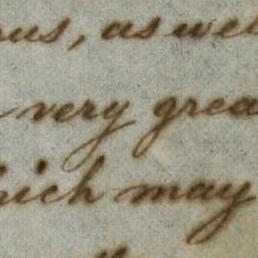 ous, as wel
very grea
hich may